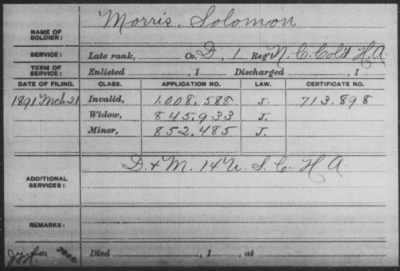 NAME OF SOLDIER: Morris, Solomon
SERVICE: Late rank, Co. D, 1 Reg't N. C. Cold H A
TERM OF SERVICE: Enlisted , 1 Discharged , 1
DATE OF FILING. CLASS. APPLICATION NO. LAW. CERTIFICATE NO.
1891 Mch 21 Invalid, 1.008.588 J. 713.898
Widow, 845.933 J.
Minor, 852.485 J.
ADDITIONAL SERVICES: D. & M. 14 U. S. C. H A.
REMARKS:
Died , 1 , at